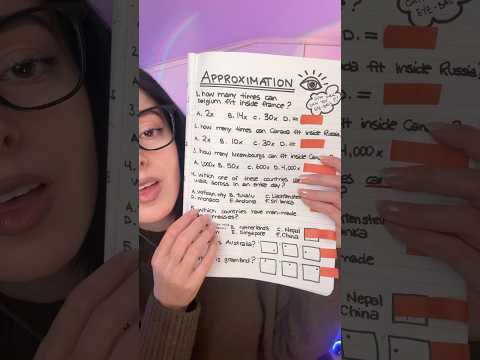 APPROXIMATION
1. how many times can
belgium fit inside france?
A. 2x B. 14x C. 30x D. =
2. how many times can Canada fit inside Russia
A. 2x B. 10x C. 30x D. =
3. how many luxembourgs can fit inside Can
A. 1,000x B. 50x C. 600x D. 4,000x
4. Which one of these countries can
walk across in an entire day?
A. Vatican city B. tuvalu C. Liechtenstein
D. monaco E. Andorra F. Sri lanka
Which countries have man-made
masses?
B. netherlands C. Nepal
E. Singapore F. China
is Australia?
is greenland?
D. =
fit inside Russia?
fit inside
4,000x
can
made
Nepal
China